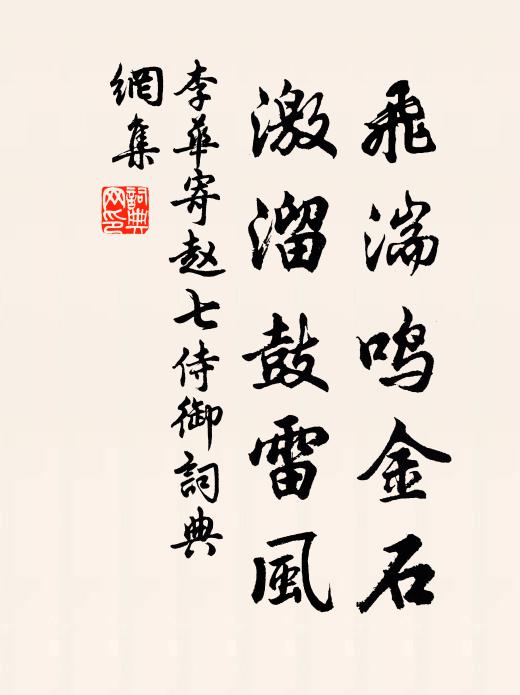 飛湍鳴金石
激溜鼓雷風
李華寄赵七侍御詞典
網集
詞典網印